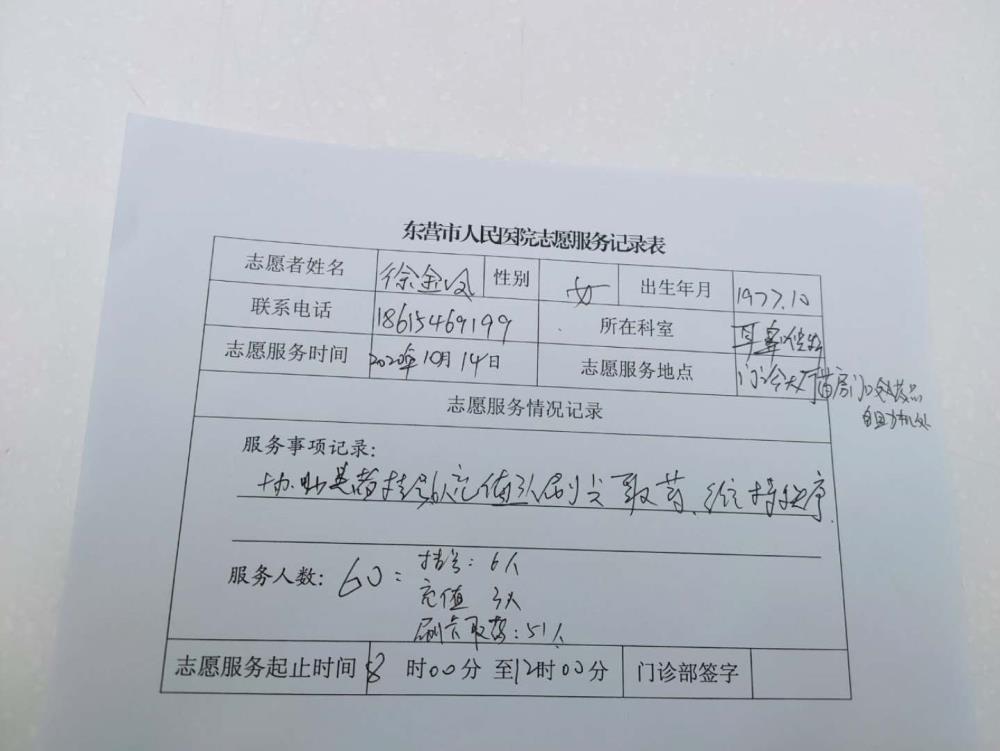 东营市人民医院志愿服务记录表
志愿者姓名 徐金凤 性别 女 出生年月 1977.10
联系电话 18615469199 所在科室 耳鼻喉科
志愿服务时间 2020年10月14日 志愿服务地点 门诊大厅药房门口
自助机处
志愿服务情况记录
服务事项记录:
协助患者挂号、充值及刷卡取药、维持秩序.
服务人数: 60: 挂号: 6人
充值 3人
刷卡取药: 51人
志愿服务起止时间 8 时00分 至12时00分 门诊部签字